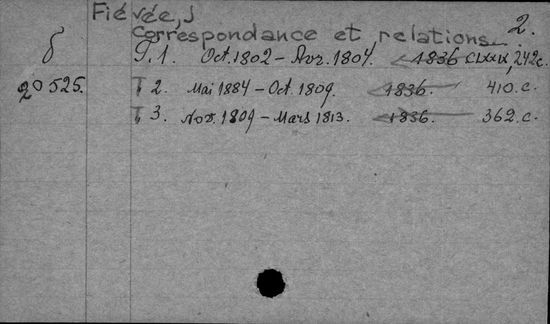 Fiévée, J
2.
Correspondance et relations
б T. 1. Oct. 1802 - Avr. 1804. 1836 CLXXIX, 242 c.
20525. T 2. Mai 1884 - Oct. 1809. 1836. 410. c.
T 3. Nov. 1809 - Mars 1813. 1836. 362. c.